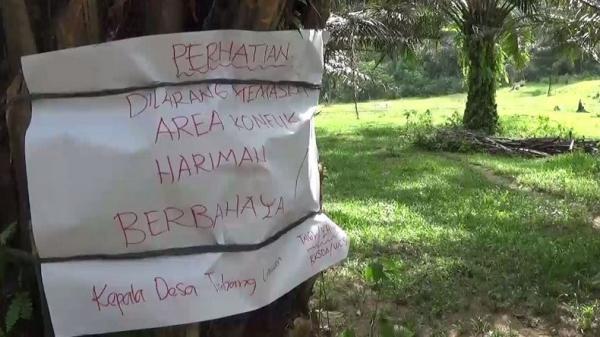 PERHATIAN
DILARANG MEMASUKI
AREA KONFLIK
HARIMAU
BERBAHAYA
Kepala Desa Tubang